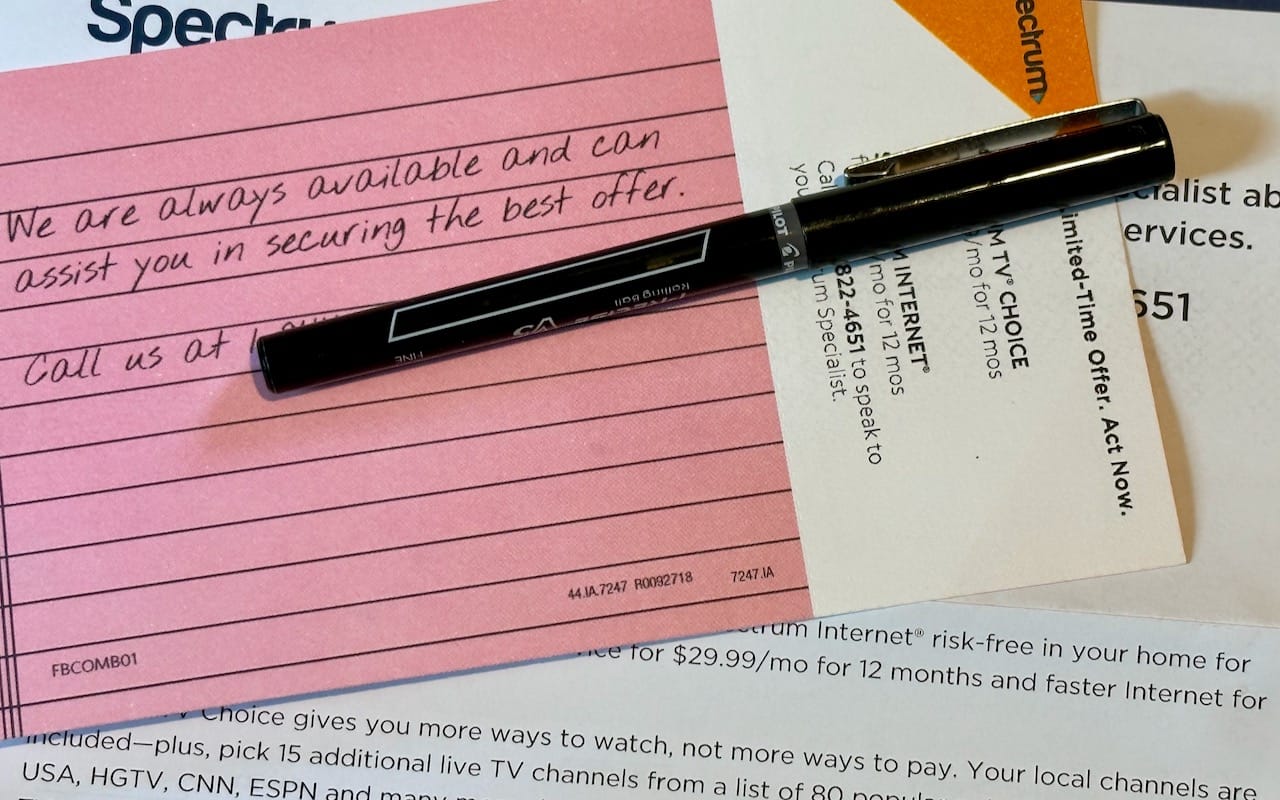 We are always available and can
assist you in securing the best offer.
Call us at
44.IA.7247 R0092718 7247.IA
FBCOMB01
PILOT
Rolling Ball
FINE
Limited-Time Offer. Act Now.
TV® CHOICE
/mo for 12 mos
INTERNET®
/mo for 12 mos
822-4651 to speak to
Specialist.
Internet® risk-free in your home for
for $29.99/mo for 12 months and faster Internet for
Choice gives you more ways to watch, not more ways to pay. Your local channels are
included—plus, pick 15 additional live TV channels from a list of 80
USA, HGTV, CNN, ESPN and many